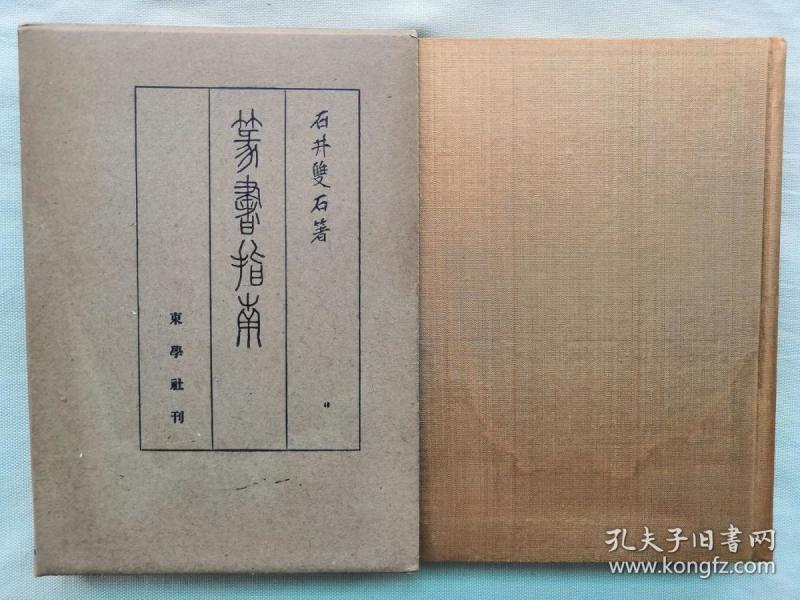 石井雙石著
篆書指南
東學社刊
孔夫子旧书网
www.kongfz.com